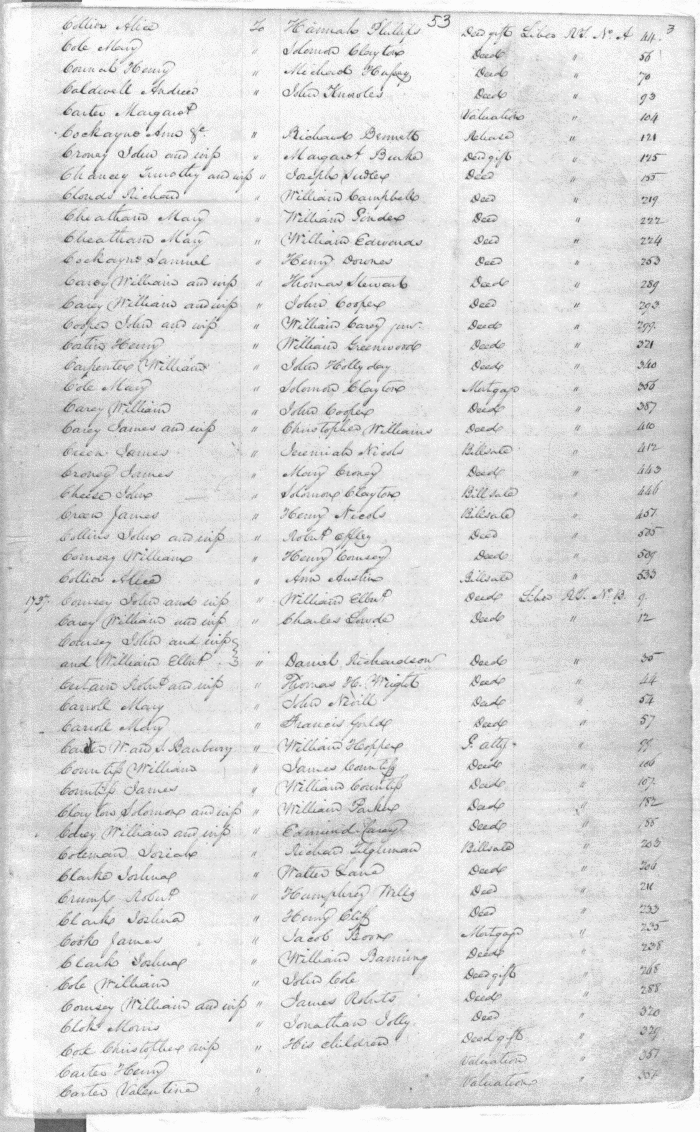 53
3
Collier Alice To Hannah Phillips Deed gift Liber RT. No. A 44
Cole Mary " Solomon Clayton Deed " 56
Connal Henry " Michael Deed " 70
Caldwell Andrew " John Knowles Deed " 93
Carter Margaret Valuation " 104
Cockayne Ann &c. " Richard Bennett Release " 121
Croney John and wife " Margaret Burke Deed gift " 125
Chancey Timothy and wife " Joseph Sudler Deed " 155
Clouds Richard " William Campbell Deed " 219
Cheatham Mary " William Pindex Deed " 222
Cheatham Mary " William Edwards Deed " 224
Cockayne Samuel " Henry Downes Deed " 253
Carey William and wife " Thomas Stewart Deed " 289
Carey William and wife " John Cooper Deed " 293
Cooper John and wife " William Carey junr. Deed " 299
Costin Henry " William Greenwood Deed " 321
Carpenter William " John Hollyday Deed " 340
Cole Mary " Solomon Clayton Mortgage " 356
Carey William " John Cooper Deed " 387
Carey James and wife " Christopher Williams Deed " 410
Creen James " Jeremiah Nicols Billsale " 412
Croney James " Mary Croney Deed " 443
Cheese John " Solomon Clayton Billsale " 446
Creen James " Henry Nicols Billsale " 457
Collins John and wife " Robert Deed " 505
Comsey William " Henry Comsey Deed " 509
Collier Alice " Ann Austin Billsale " 533
1757. Comsey John and wife " William Ellert Deed Liber RT. No. B. 9
Carey William and wife " Charles Lowde Deed " 12
Comsey John and wife
and William Ellert " Daniel Richardson Deed " 35
Certain Robert and wife " Thomas H. Wright Deed " 44
Carroll Mary " John Nevill Deed " 54
Carroll Mary " Francis Deed " 57
Carter W. and S. Banbury " William Hopper P. atty. " 99
Countiss William " James Countiss Deed " 106
Countiss James " William Countiss Deed " 107
Clayton Solomon and wife " William Parker Deed " 182
Carey William and wife " Edmund Carey Deed " 188
Coleman Josiah " Richard Tilghman Billsale " 203
Clark Joshua " Walter Lane Deed " 204
Crump Robert " Humphrey Wells Deed " 211
Clark Joshua " Henry Clift Deed " 233
Cook James " Jacob Boon Mortgage " 235
Clark Joshua " William Banning Deed " 238
Cole William " John Cole Deed gift " 268
Comsey William and wife " James Roberts Deed " 288
Cloke Morris " Jonathan Jolly Deed " 320
Cox Christopher wife " His children Deed gift " 329
Carter Henry " Valuation " 337
Carter Valentine " Valuation " 338